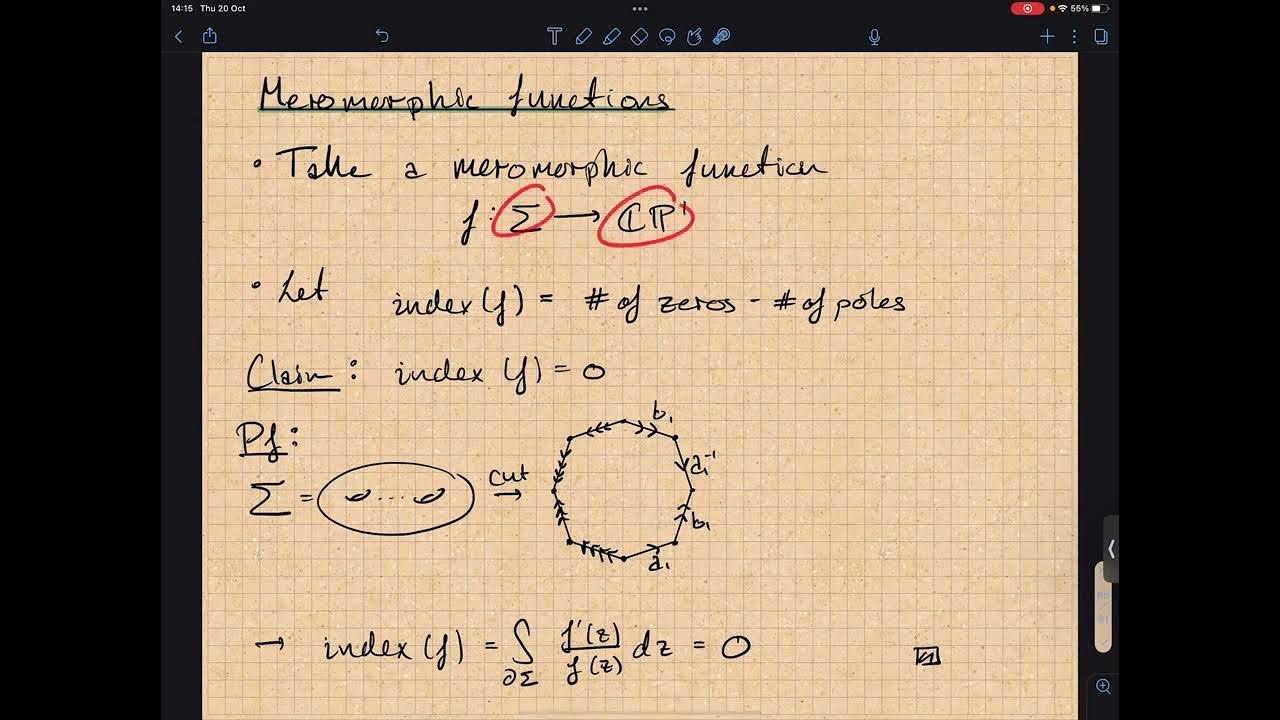 14:15 Thu 20 Oct
55%
Meromorphic functions
• Take a meromorphic function
f : Σ → ℂℙ¹
• Let index (f) = # of zeros - # of poles
Claim: index (f) = 0
Pf:
Σ = ... cut →
b₁
a₁⁻¹
b₁
a₁
→ index (f) = ∫_∂Σ f'(z)/f(z) dz = 0